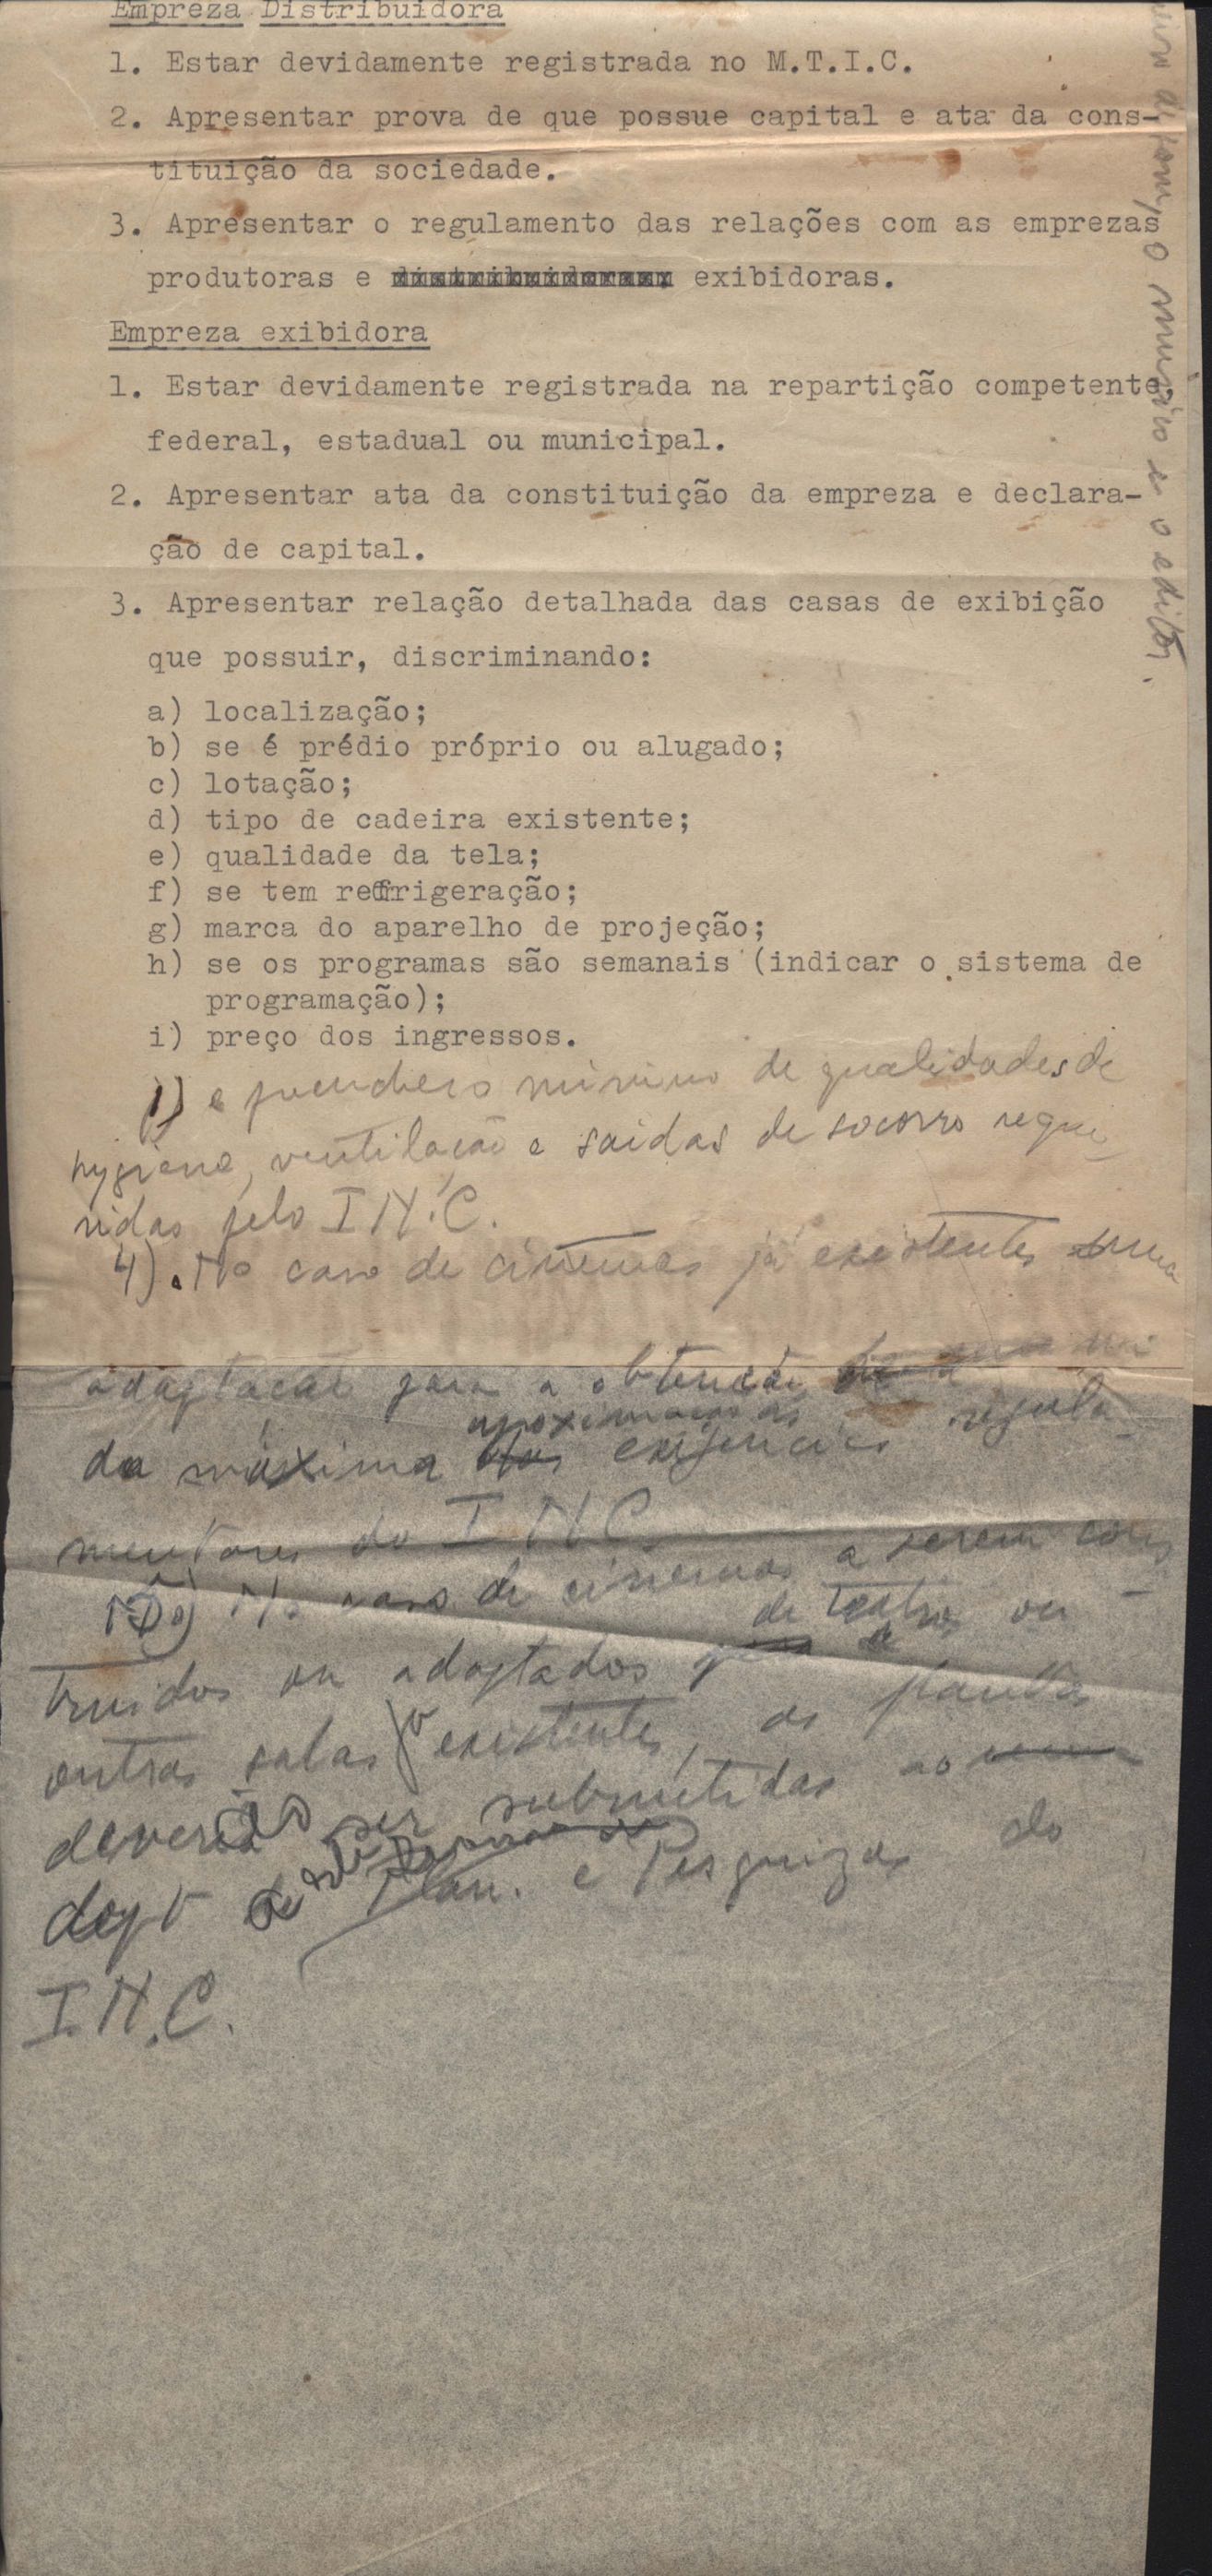 Empreza Distribuidora
1. Estar devidamente registrada no M.T.I.C.
2. Apresentar prova de que possue capital e ata da cons-
tituição da sociedade.
3. Apresentar o regulamento das relações com as emprezas
produtoras e distribuidoras exibidoras.
Empreza exibidora
1. Estar devidamente registrada na repartição competente,
federal, estadual ou municipal.
2. Apresentar ata da constituição da empreza e declara-
ção de capital.
3. Apresentar relação detalhada das casas de exibição
que possuir, discriminando:
a) localização;
b) se é prédio próprio ou alugado;
c) lotação;
d) tipo de cadeira existente;
e) qualidade da tela;
f) se tem refrigeração;
g) marca do aparelho de projeção;
h) se os programas são semanais (indicar o sistema de
programação);
i) preço dos ingressos.
j) e minimo de qualidades de
hygiene, ventilação e saidas de socorro reque-
ridas pelo I.N.C.
4). No caso de cinemas já existentes uma
adaptação para a obtenção
da máxima aproximação as exigencias regula-
mentares do I N C
5a) No caso de cinemas a serem cons-
truidos ou adaptados de teatros ou
outras salas já existentes, as plantas
deverão ser submetidas ao
dept de Plan. e Pesquizas do
I.N.C.
o musico e o editor.